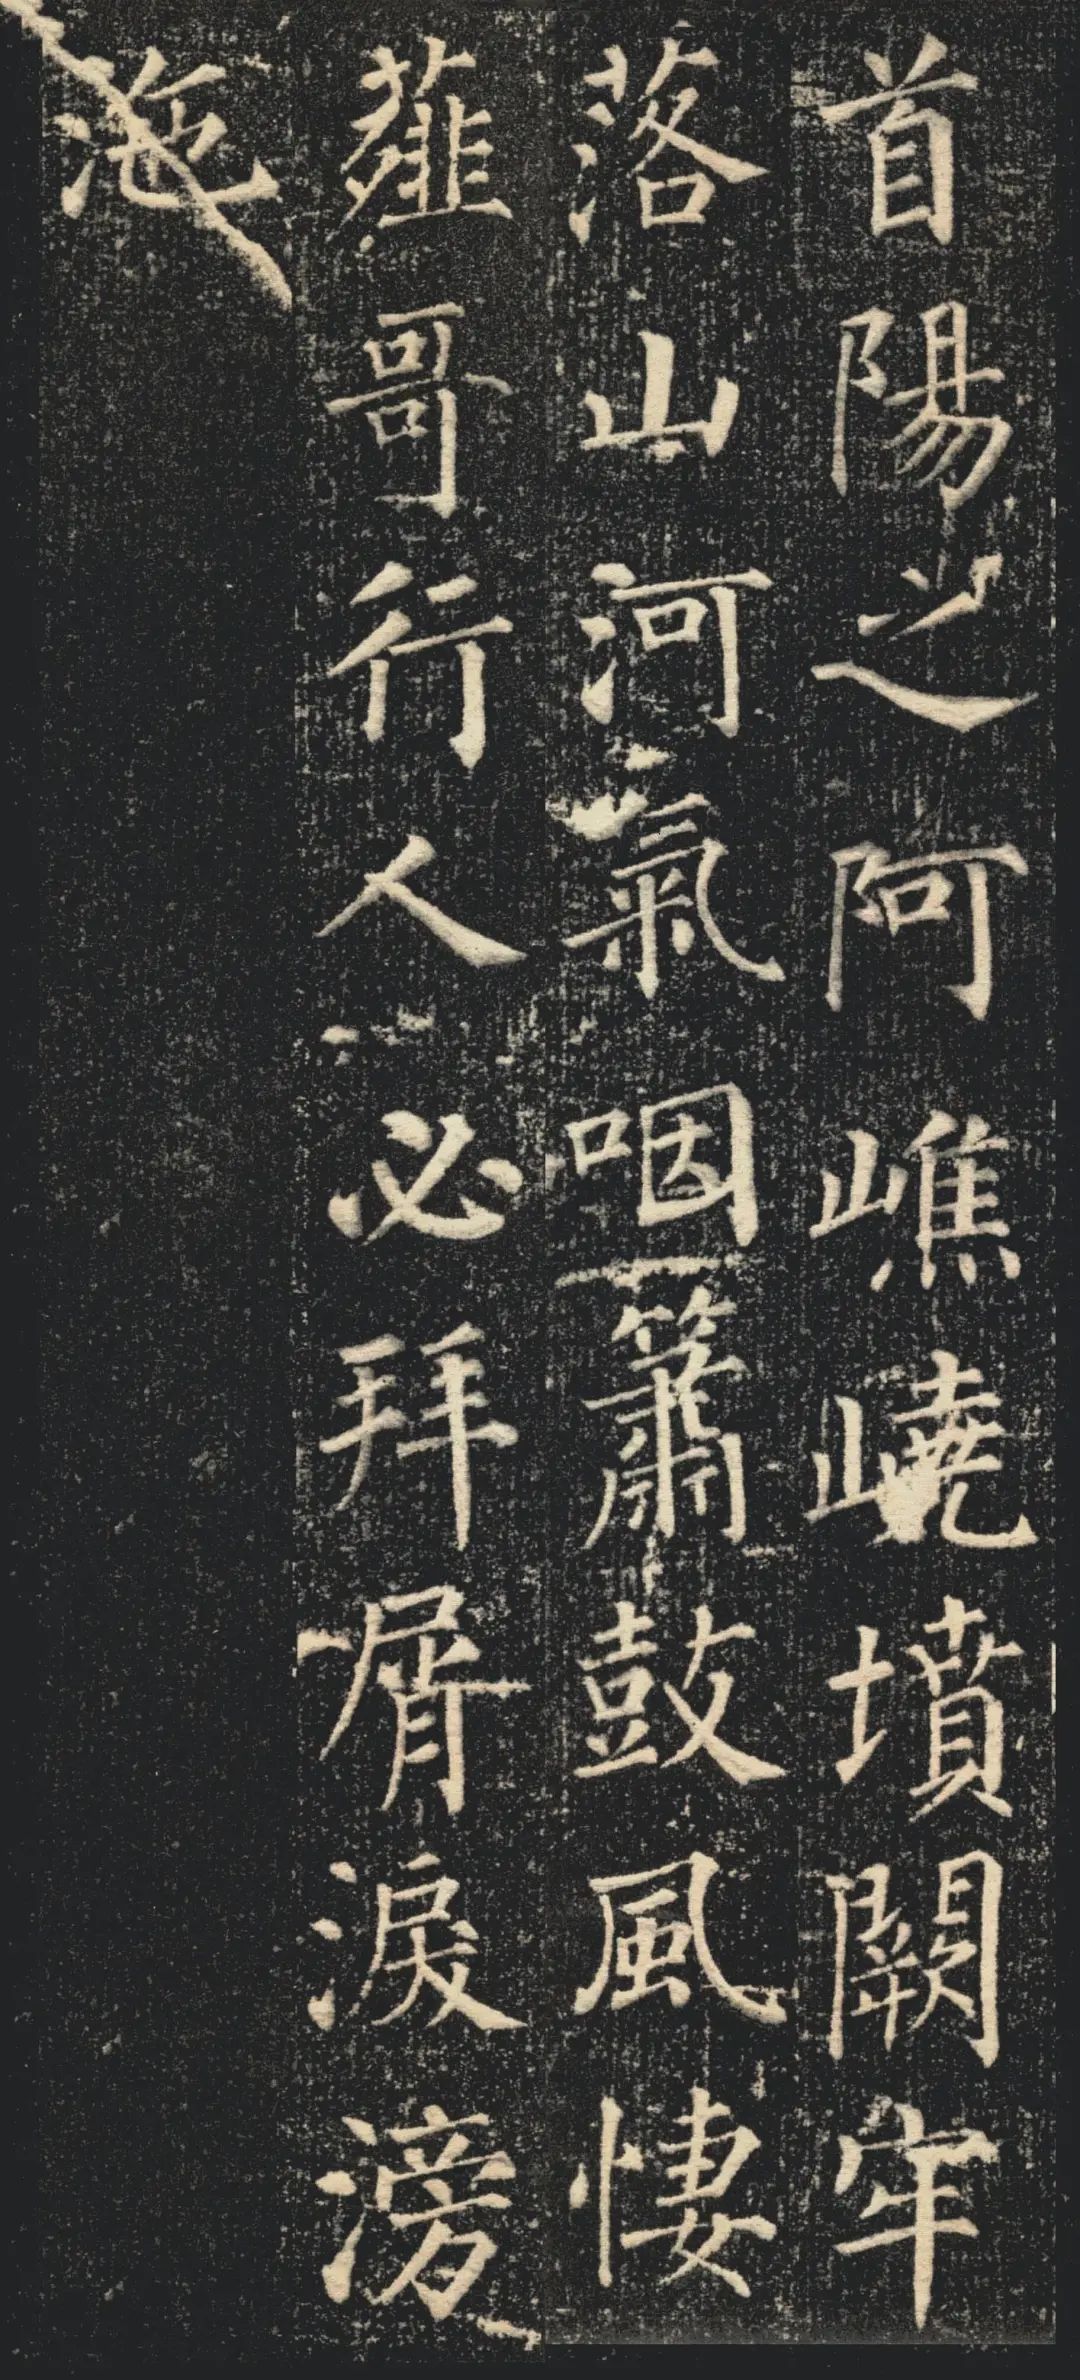 首陽之阿嶕嶢墳闕牢
落山河氣咽簫鼓風悽
薤哥行人必拜屑淚滂
沲